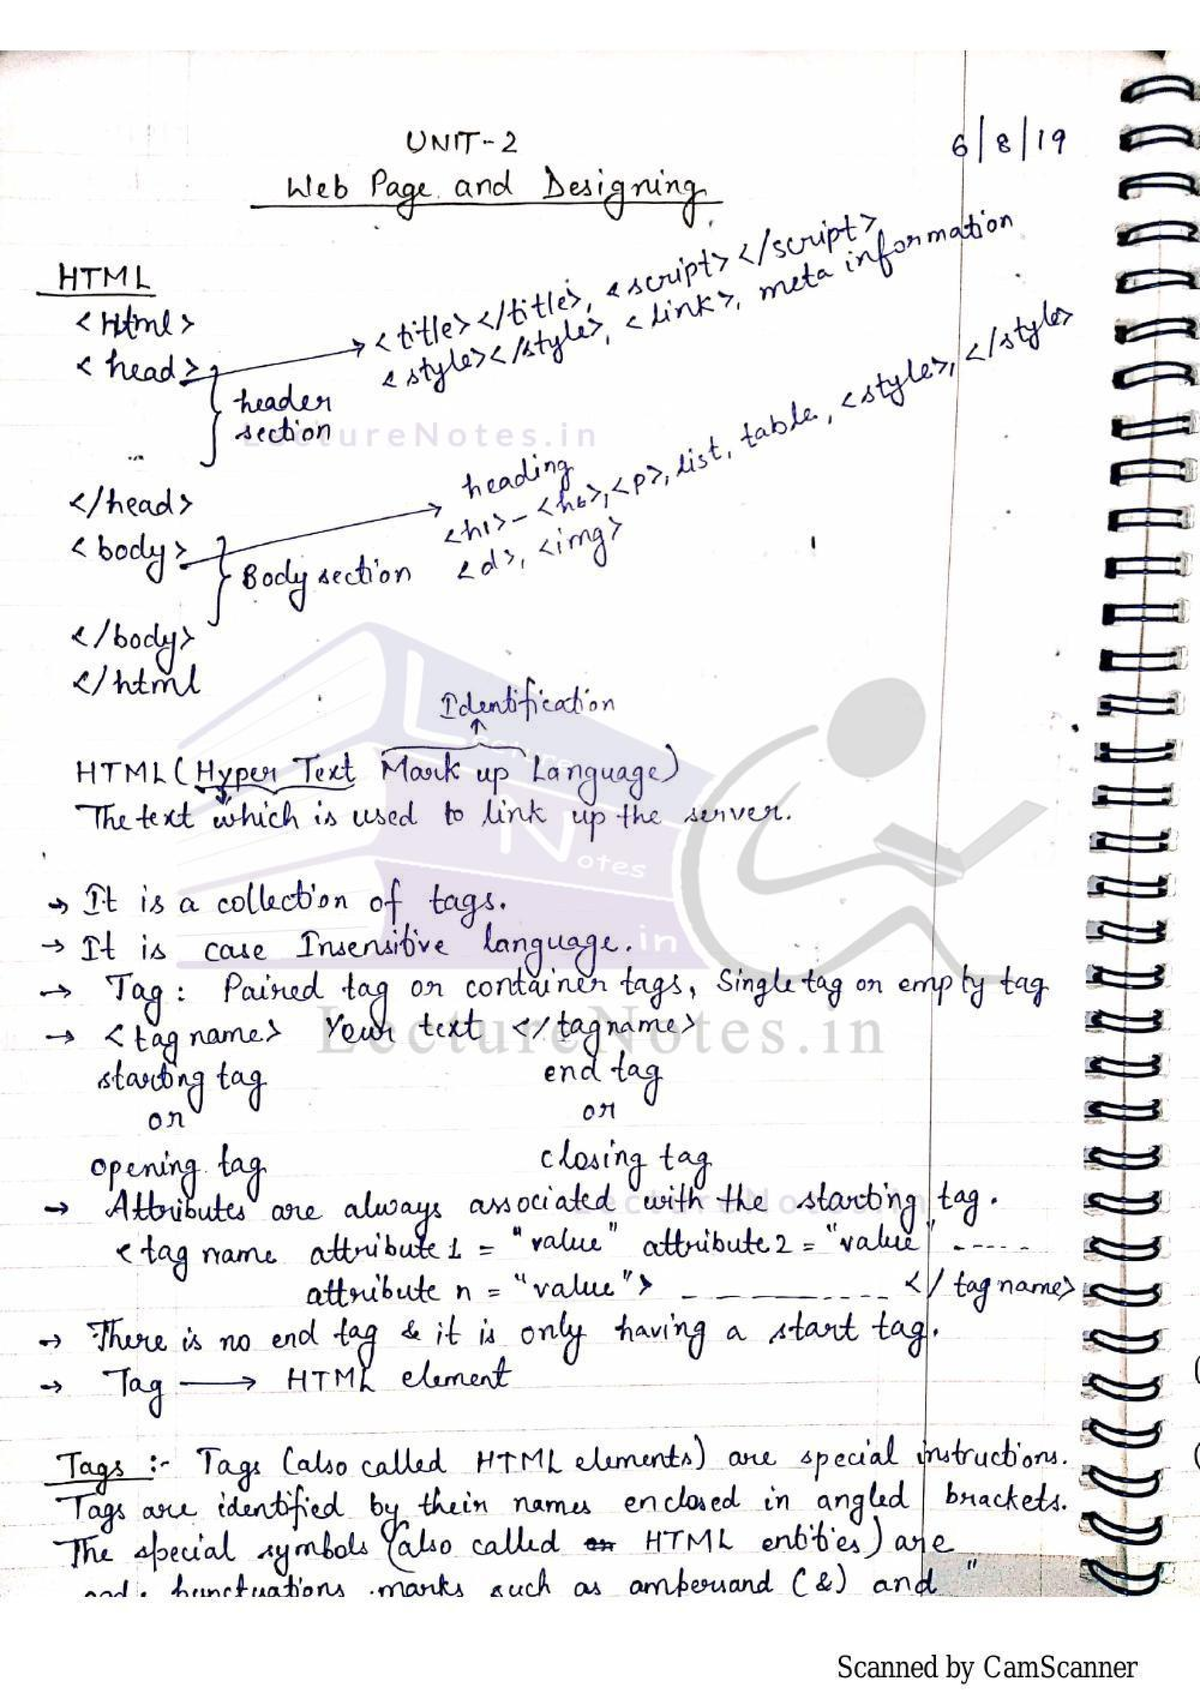 UNIT-2
6/8/19
Web Page and Designing
HTML
<Html>
<head>
<title></title>, <script></script>
<style></style>, <link>, meta information
header
section
LectureNotes.in
</head>
<body>
heading
<h1>-<h6>,<p>, list, table, <style>, </style>
<d>, <img>
Body section
</body>
</html
Identification
HTML (Hyper Text Mark up Language)
The text which is used to link up the server.
Lecture
Notes
.in
→ It is a collection of tags.
→ It is case Insensitive language.
→ Tag: Paired tag or container tags, Single tag or empty tag
→ <tag name> Your text </tagname>
LectureNotes.in
starting tag end tag
or or
opening tag closing tag
→ Attributes are always associated with the starting tag.
LectureNotes.in
<tag name attribute 1 = "value" attribute 2 = "value" -----
attribute n = "value"> ---------- </tag name>
→ There is no end tag & it is only having a start tag.
→ Tag → HTML element
Tags :- Tags (also called HTML elements) are special instructions.
Tags are identified by their names enclosed in angled brackets.
The special symbols (also called HTML entities) are
punctuations marks such as ampersand (&) and "
Scanned by CamScanner